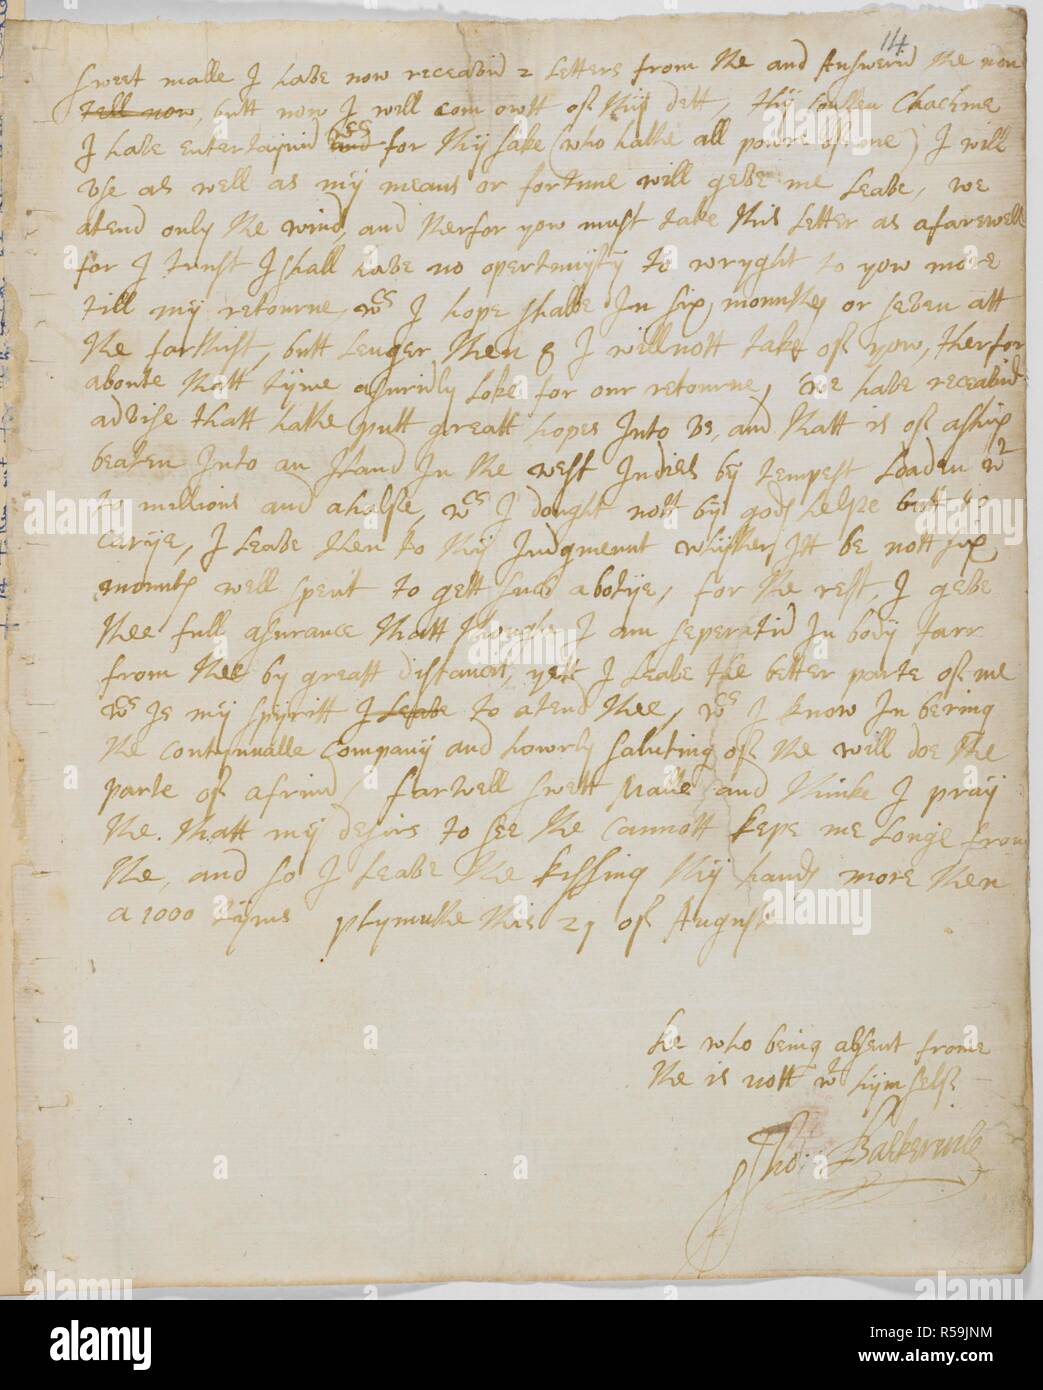 14
Sweet malle I have now receavid 2 Letters from the and Answerd the non
tell now, butt now I will com owtt of thy dett, thy
I have entertaynid wch and for thy sake (who hathe all powre of me) I will
Vse as well as my means or fortune will geve me Leave, we
atend only the wind, and therfor yow must take this Letter as a farewell
for I trust I shall have no opertunyty to wryght to yow more
till my retourne, wch I hope shalbe In six mounthes or seven att
the farthist, butt Lenger then 8 I will nott take of yow, therfor
aboute thatt tyme asuridly Loke for our retourne, we have receavid
advise thatt hathe putt greatt hopes Into vs, and thatt is of a ship
beaten Into an Iland In the west Indies by tempest Loaden wt
to millions and a halfe, wch I dought nott by gods helpe butt to
carye, I Leave then to thy Iudgment whyther Itt be nott six
mounths well spent to gett such a botye, for the rest, I geve
thee full asurance thatt thoughe I am seperatid In body farr
from thee by greatt distances, yett I Leave the better parte of me
wch Is my spyritt I Leave to atend thee, wch I know In bering
the contynualle company and howrly saluting of the will doe the
parte of a frind, farwell swett Malle and thinke I pray
the. thatt my desirs to see the cannott kepe me Longe from
the, and so I Leave the kissing thy hands more then
a 1000 tyms plymuthe this 27 of August
he who being absent frome
the is nott wt hymself
Tho: Baskervile
alamy
alamy
alamy
alamy
Image ID: R59JNM
www.alamy.com